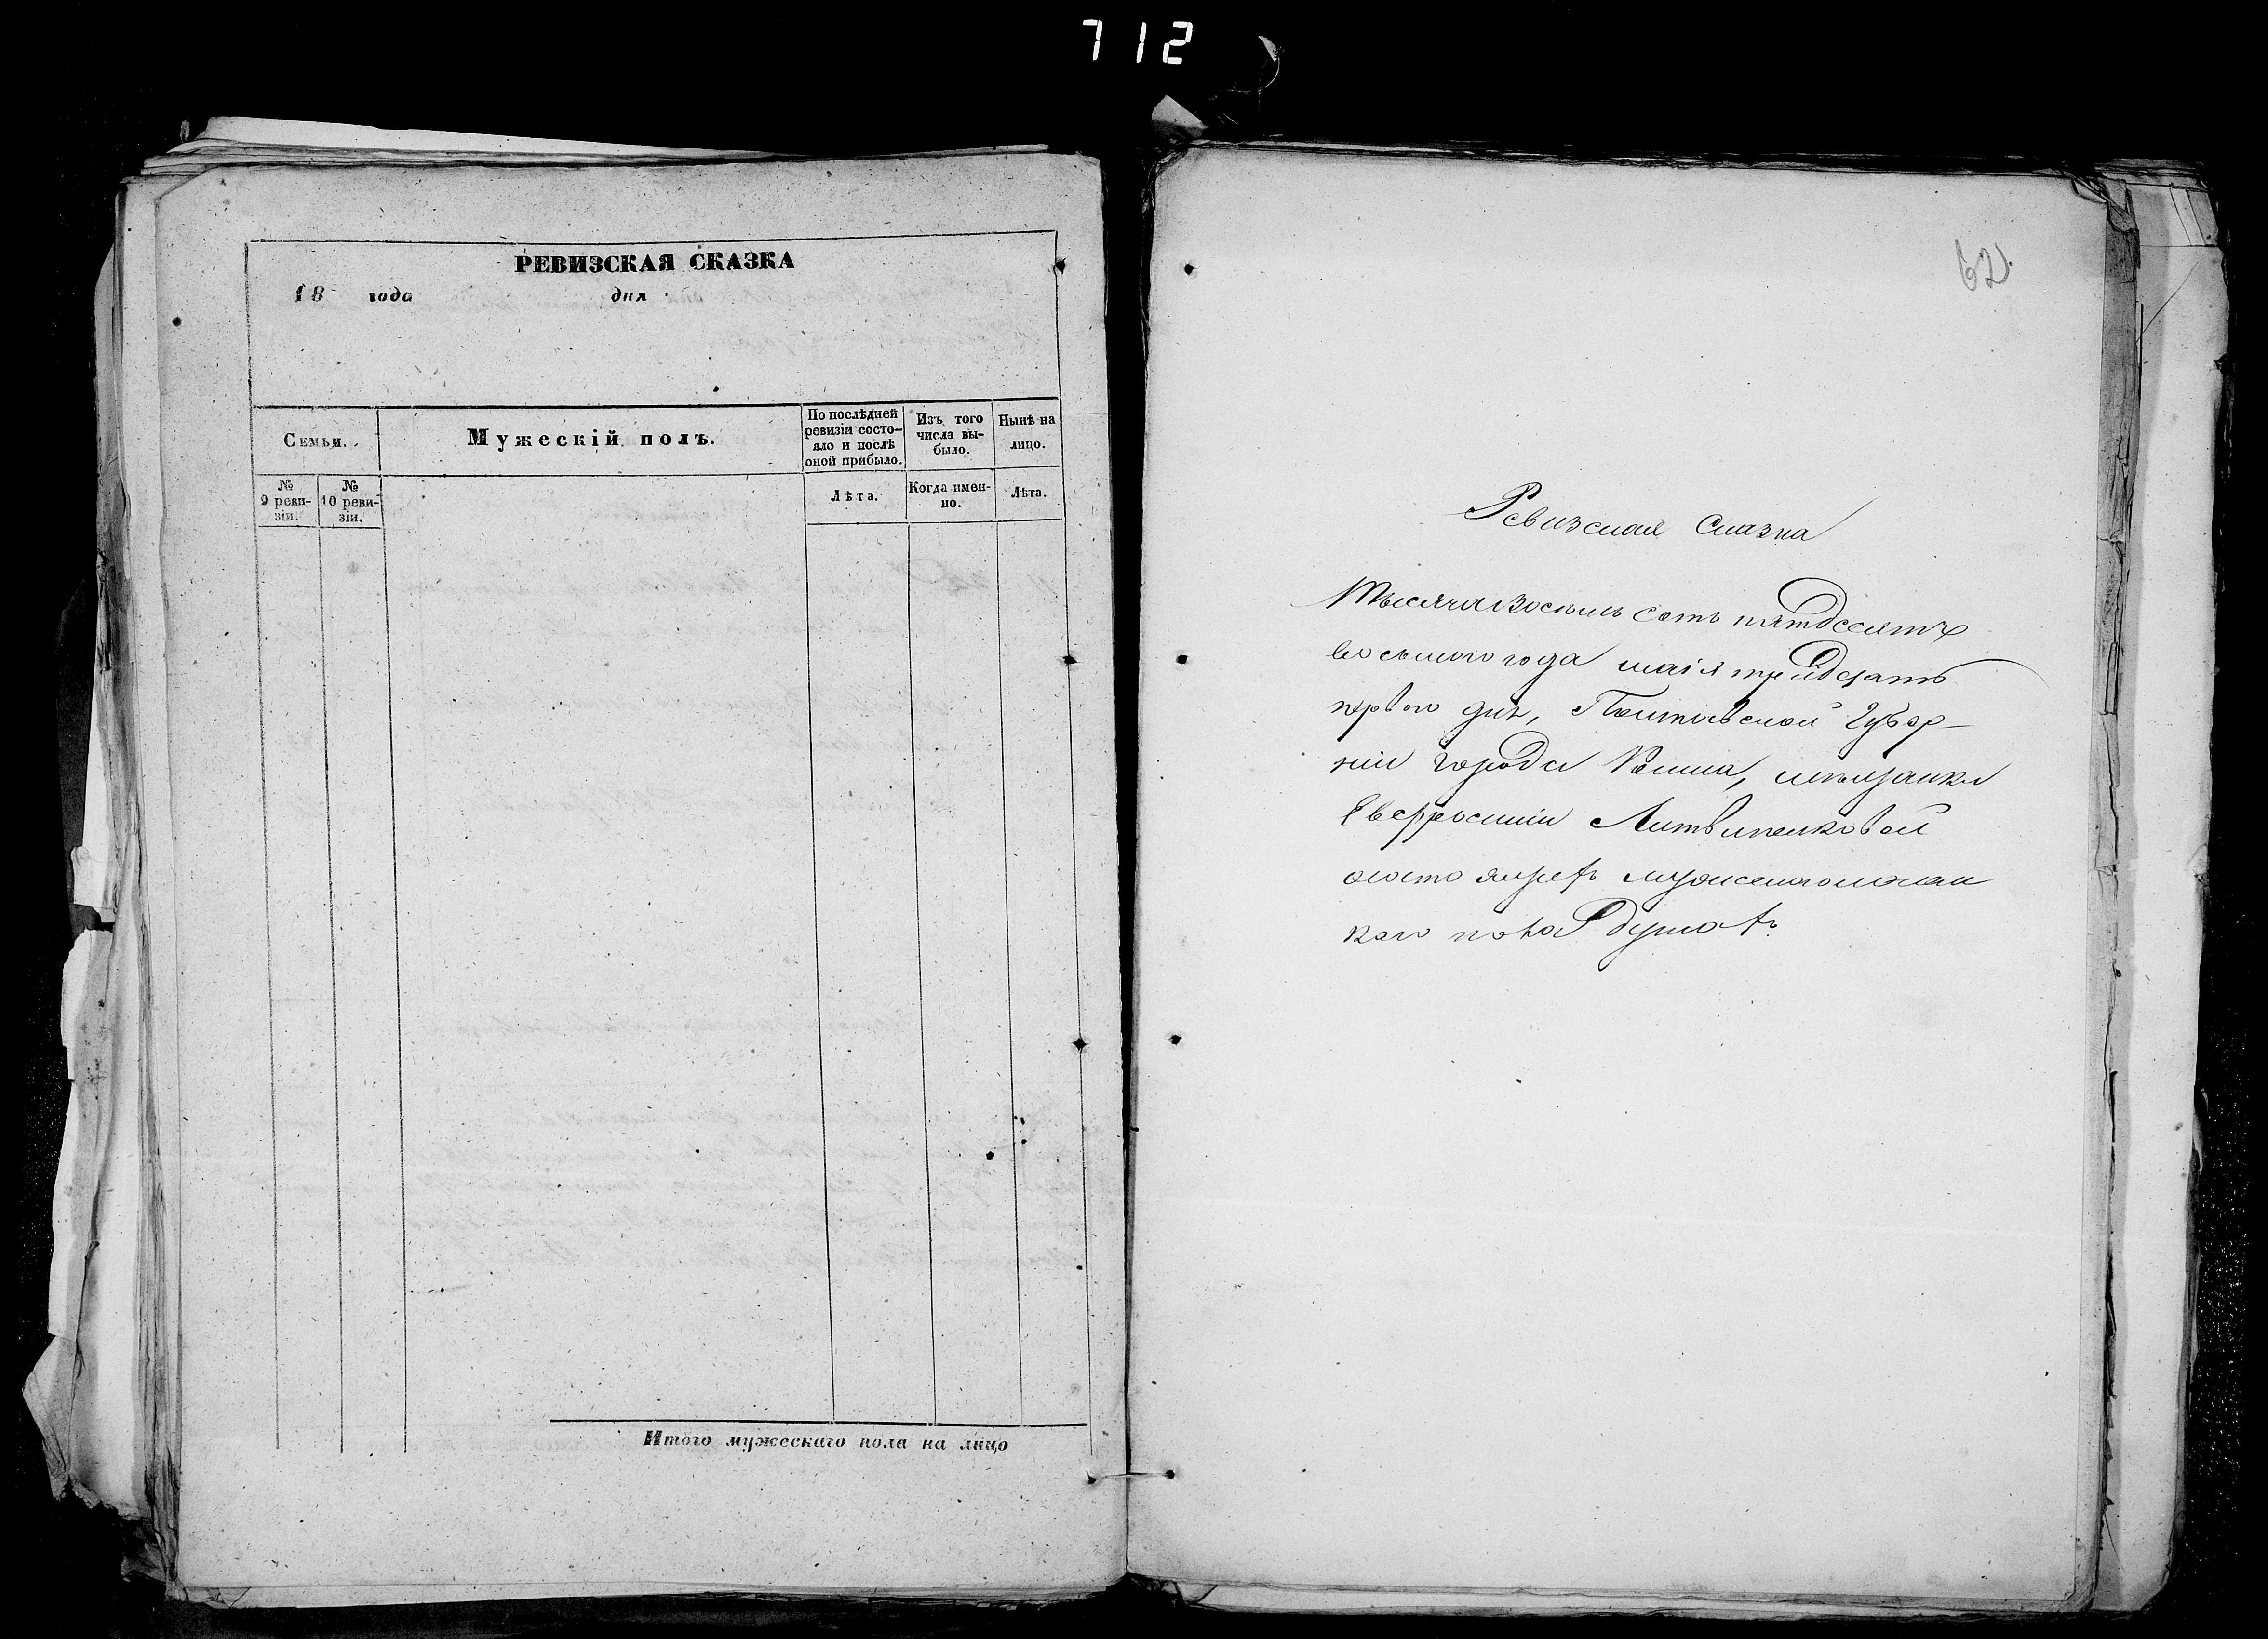 712
РЕВИЗСКАЯ СКАЗКА
18 года дня
Семьи.
Мужескій полъ.
По послѣдней ревизіи состо-
яло и послѣ
оной прибыло.
Изъ того
числа вы-
было.
Нынѣ на
лицо.
№
9 реви-
зіи.
№
10 реви-
зіи.
Лѣта.
Когда имен-
но.
Лѣта.
Итого мужескаго пола на лицо
62.
Ревизская Сказка
Тысяча восемь сотъ пятдесятъ
восьмого года маія тридцать
первого дня, Полтавской Губер-
ніи города мѣщанки
Евфросиніи Литвиненковой
о состоящей
кого пола душахъ